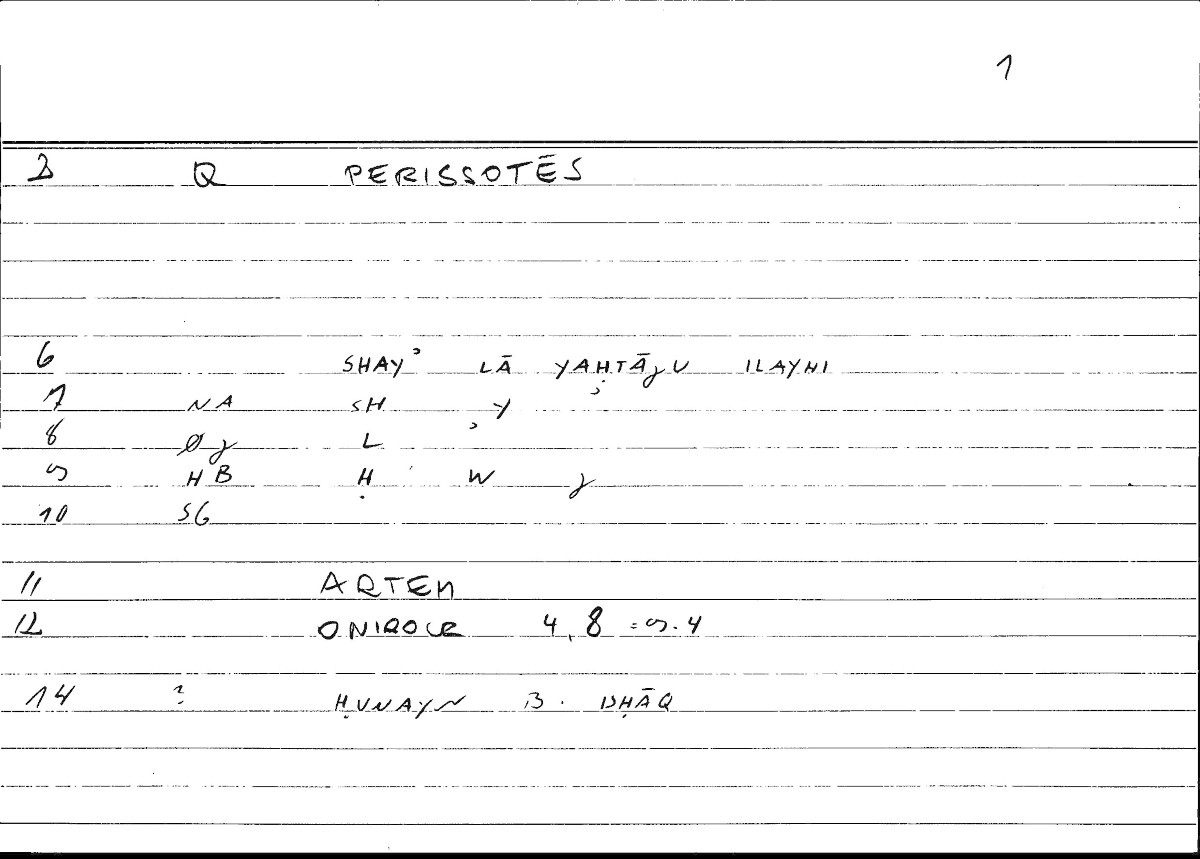 1
2 Q PERISSOTĒS
6 SHAYʾ LĀ YAḤTĀJU ILAYHI
7 NA SH Y ʾ
8 ØJ L ʾ
9 HB Ḥ W J
10 SG
11 ARTEM
12 ONIROCR 4,8 = 9.4
14 ? ḤUNAYN B. ISḤĀQ